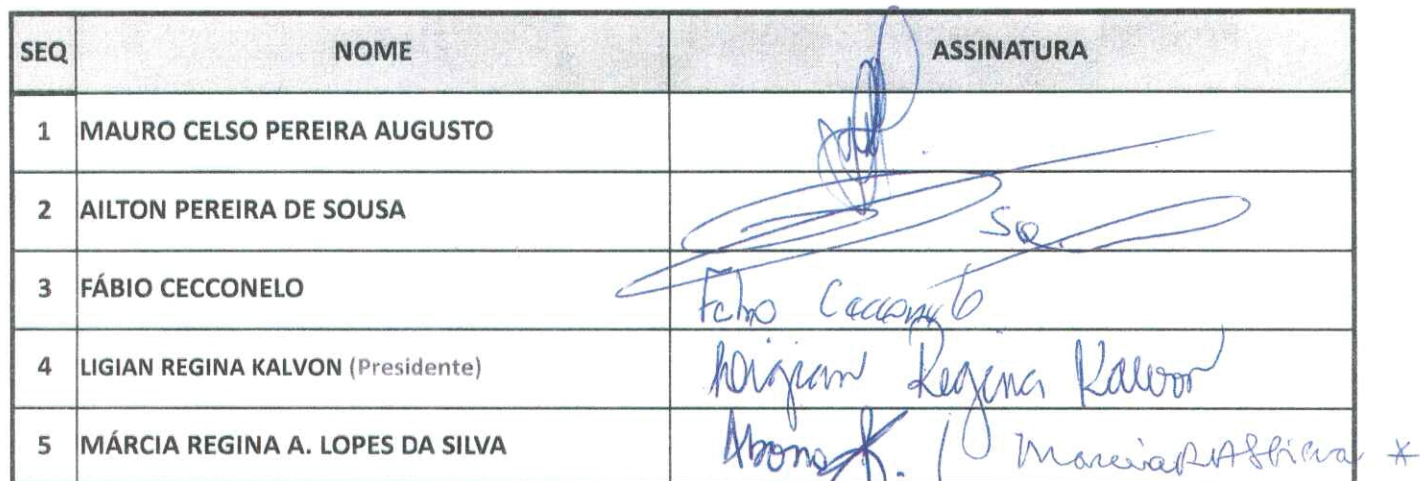 SEQ NOME ASSINATURA
1 MAURO CELSO PEREIRA AUGUSTO
2 AILTON PEREIRA DE SOUSA
3 FÁBIO CECCONELO Fabio Cecconelo
4 LIGIAN REGINA KALVON (Presidente) Ligian Regina Kalvon
5 MÁRCIA REGINA A. LOPES DA SILVA Abono *